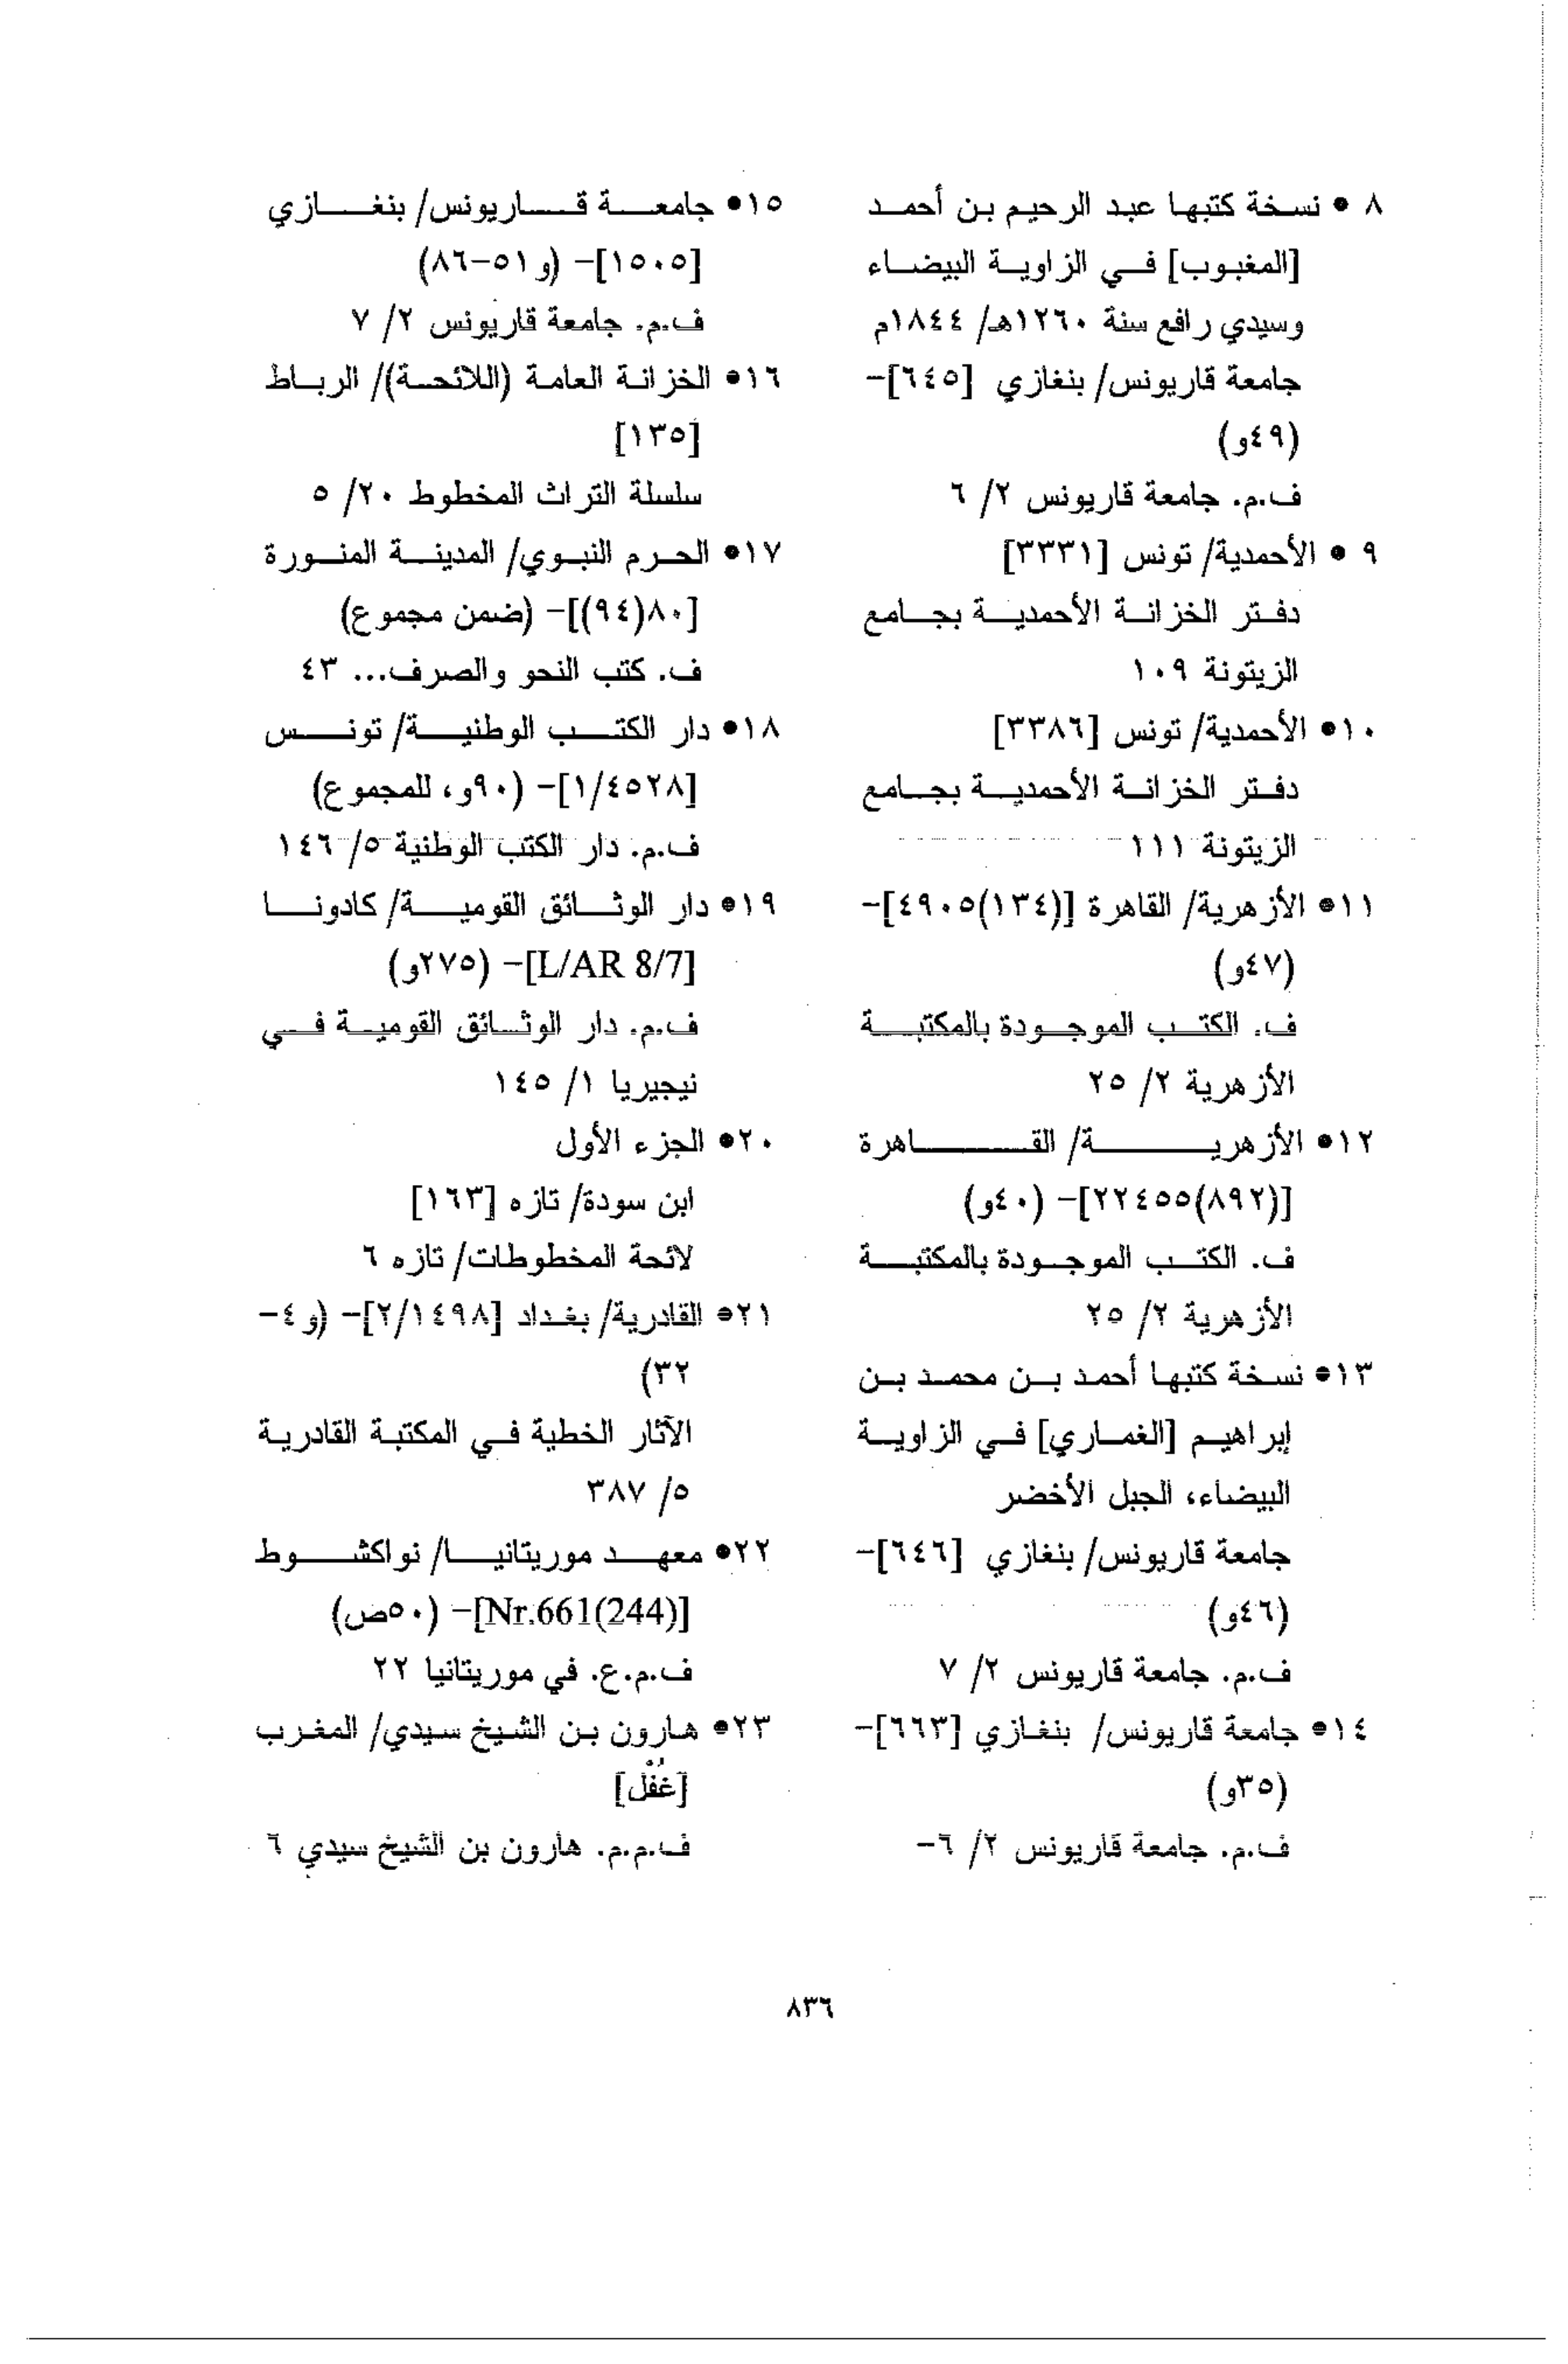 ٨ • نسخة كتبها عبد الرحيم بن أحمد
[المغبوب] في الزاوية البيضاء
وسيدي رافع سنة ١٢٦٠هـ/ ١٨٤٤م
جامعة قاريونس/ بنغازي [٦٤٥]-
(٤٩و)
ف.م. جامعة قاريونس ٢/ ٦
٩ • الأحمدية/ تونس [٣٣٣١]
دفتر الخزانة الأحمدية بجامع
الزيتونة ١٠٩
١٠• الأحمدية/ تونس [٣٣٨٦]
دفتر الخزانة الأحمدية بجامع
الزيتونة ١١١
١١• الأزهرية/ القاهرة [(١٣٤)٤٩٠٥]-
(٤٧و)
ف. الكتب الموجودة بالمكتبة
الأزهرية ٢/ ٢٥
١٢• الأزهرية/ القاهرة
[(٨٩٢)٢٢٤٥٥]- (٤٠و)
ف. الكتب الموجودة بالمكتبة
الأزهرية ٢/ ٢٥
١٣• نسخة كتبها أحمد بن محمد بن
إبراهيم [الغماري] في الزاوية
البيضاء، الجبل الأخضر
جامعة قاريونس/ بنغازي [٦٤٦]-
(٤٦و)
ف.م. جامعة قاريونس ٢/ ٧
١٤• جامعة قاريونس/ بنغازي [٦٦٣]-
(٣٥و)
ف.م. جامعة قاريونس ٢/ ٦-
١٥• جامعة قاريونس/ بنغازي
[١٥٠٥]- (و٥١-٨٦)
ف.م. جامعة قاريونس ٢/ ٧
١٦• الخزانة العامة (اللائحة)/ الرباط
[١٣٥]
سلسلة التراث المخطوط ٢٠/ ٥
١٧• الحرم النبوي/ المدينة المنورة
[٨٠(٩٤)]- (ضمن مجموع)
ف. كتب النحو والصرف... ٤٣
١٨• دار الكتب الوطنية/ تونس
[١/٤٥٢٨]- (٩٠و، للمجموع)
ف.م. دار الكتب الوطنية ٥/ ١٤٦
١٩• دار الوثائق القومية/ كادونا
[L/AR 8/7]- (٢٧٥و)
ف.م. دار الوثائق القومية في
نيجيريا ١/ ١٤٥
٢٠• الجزء الأول
ابن سودة/ تازه [١٦٣]
لائحة المخطوطات/ تازه ٦
٢١• القادرية/ بغداد [٢/١٤٩٨]- (و٤-
٣٢)
الآثار الخطية في المكتبة القادرية
٥/ ٣٨٧
٢٢• معهد موريتانيا/ نواكشوط
[Nr.661(244)]- (٥٠ص)
ف.م.ع. في موريتانيا ٢٢
٢٣• هارون بن الشيخ سيدي/ المغرب
[غُفْل]
ف.م.م. هارون بن الشيخ سيدي ٦
٨٣٦